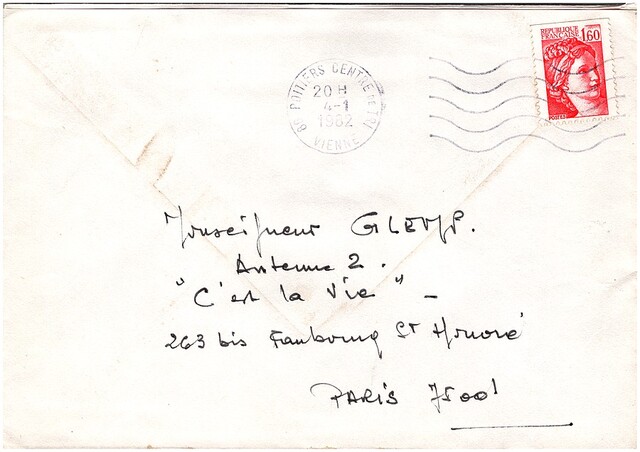 REPUBLIQUE
FRANÇAISE 1,60
POSTES
86 POITIERS CENTRE DE TRI
20 H
4-1
1982
VIENNE
Monseigneur GLEMP.
Antenne 2.
"C'est la Vie" -
263 bis Faubourg St Honoré
PARIS 75001